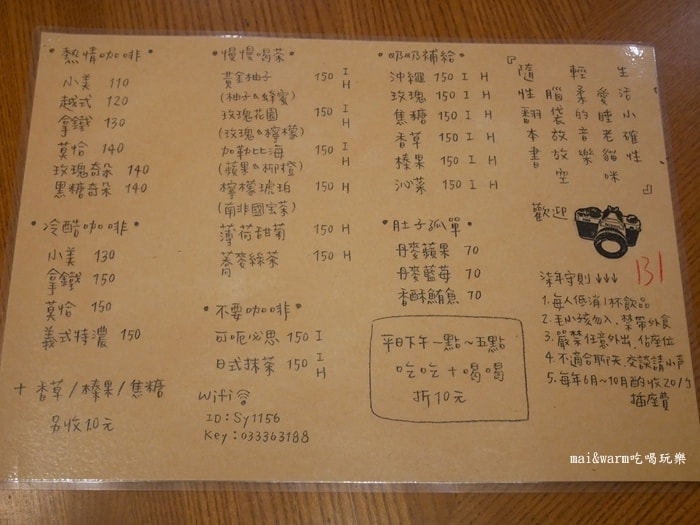 • 熱情咖啡 •
小美 110
越式 120
拿鐵 130
莫恰 140
玫瑰奇朵 140
黑糖奇朵 140
• 冷酷咖啡 •
小美 130
拿鐵 150
莫恰 150
義式特濃 150
+ 香草/榛果/焦糖
另收20元
• 慢慢喝茶 •
黃金柚子 150 I H
(柚子&蜂蜜)
玫瑰花園 150 I H
(玫瑰&檸檬)
加勒比海 150 I H
(蘋果&柳橙)
檸檬琥珀 150 H
(南非國宝茶)
薄荷甜菊 150 H
蕎麥綠茶 150 H
• 不要咖啡 •
可呃必思 150 I
日式抹茶 150 I H
Wifi
ID: Sy1156
Key: 033363188
• 奶奶補給 •
沖繩 150 I H
玫瑰 150 I H
焦糖 150 I H
香草 150 I H
榛果 150 I H
沁菜 150 I H
• 肚子孤單 •
丹麥蘋果 70
丹麥藍莓 70
香酥鮪魚 70
平日下午一點~五點
吃吃+喝喝
折10元
『生活小確性
愛睡老貓咪
輕柔的音樂
腦袋放放空
隨性翻本書』
歡迎
131
柒年守則↓↓↓
1. 每人低消1杯飲品
2. 毛小孩勿入、禁帶外食
3. 嚴禁任意外出、佔座位
4. 不適合聊天、交談請小声
5. 每年6月~10月酌收20/1
插座費
mai&warm吃喝玩樂